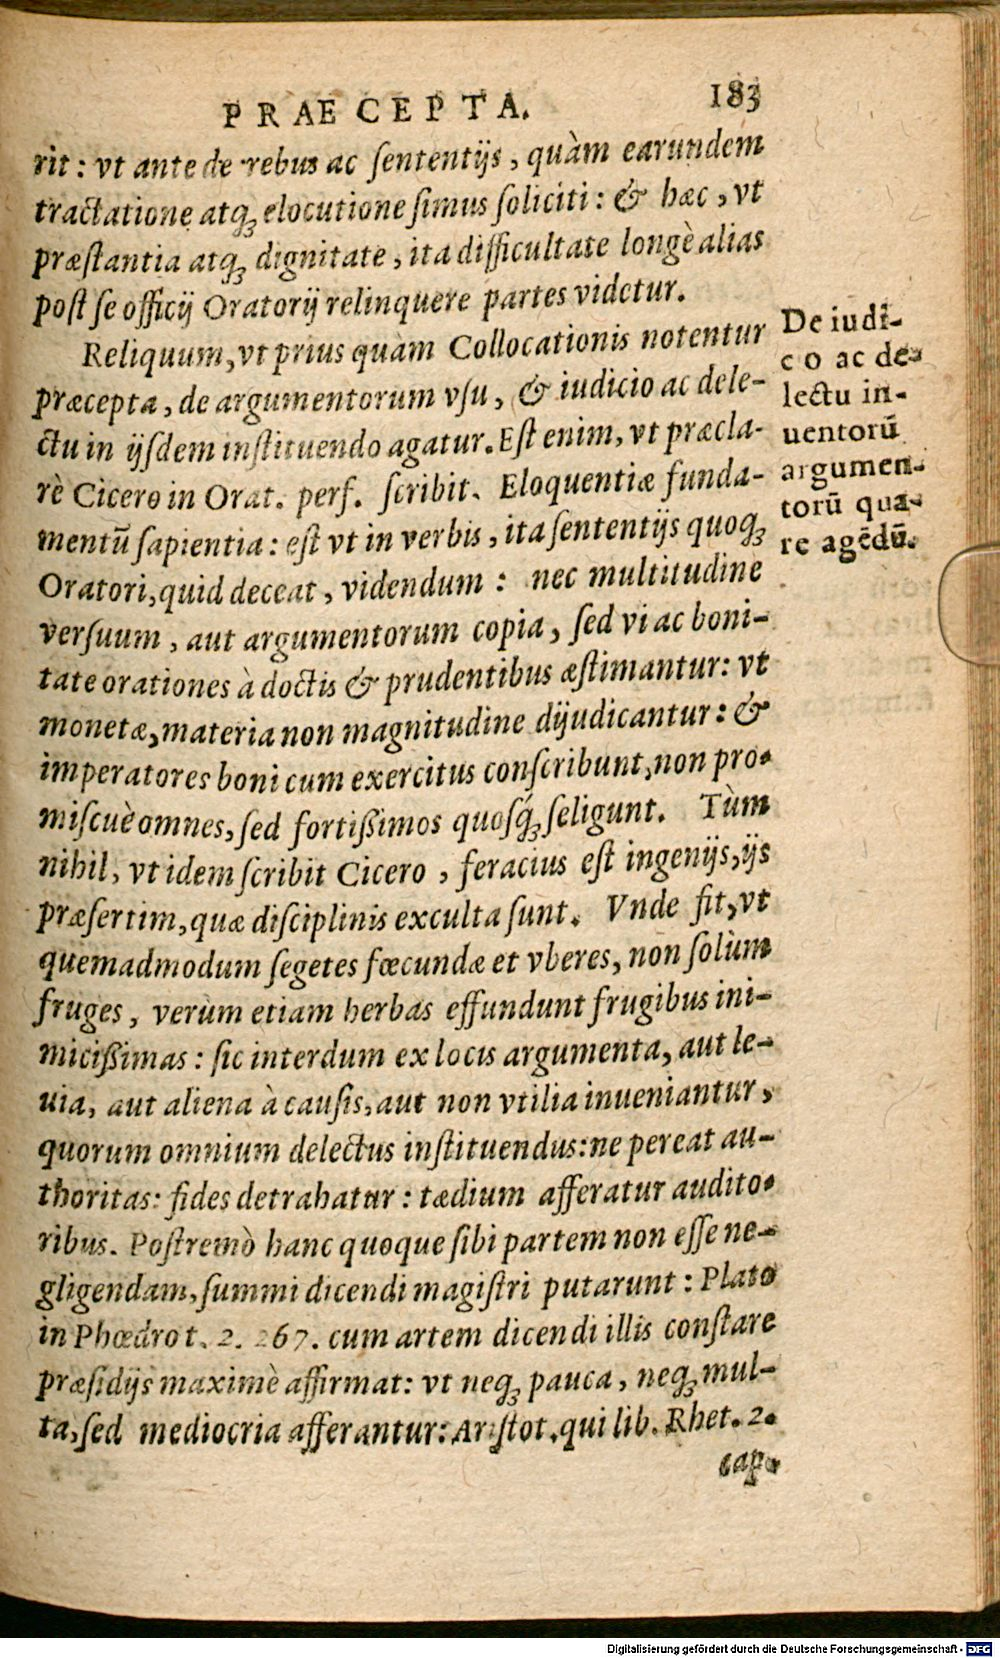 PRAECEPTA. 183
rit: vt ante de rebus ac ſententijs, quàm earundem
tractatione atq́ꝫ elocutione ſimus ſoliciti: & hæc, vt
præſtantia atqꝫ dignitate, ita difficultate longè alias
poſt ſe officij Oratorij relinquere partes videtur.
Reliquum, vt prius quàm Collocationis notentur
præcepta, de argumentorum vſu, & iudicio ac dele-
ctu in ijſdem inſtituendo agatur. Eſt enim, vt præcla-
rè Cicero in Orat. perf. ſcribit. Eloquentiæ funda-
mentũ ſapientia: eſt vt in verbis, ita ſententijs quoqꝫ
Oratori, quid deceat, videndum: nec multitudine
verſuum, aut argumentorum copia, ſed vi ac boni-
tate orationes à doctis & prudentibus æſtimantur: vt
monetæ, materia non magnitudine dijudicantur: &
imperatores boni cum exercitus conſcribunt, non pro-
miſcuè omnes, ſed fortißimos quoſq́ꝫ ſeligunt. Tùm
nihil, vt idem ſcribit Cicero, feracius eſt ingenijs, ijs
præſertim, quæ diſciplinis exculta ſunt. Vnde fit, vt
quemadmodum ſegetes fœcundæ et vberes, non ſolùm
fruges, verùm etiam herbas effundunt frugibus ini-
micißimas: ſic interdum ex locis argumenta, aut le-
uia, aut aliena à cauſis, aut non vtilia inueniantur,
quorum omnium delectus inſtituendus: ne pereat au-
thoritas: fides detrahatur: tædium afferatur audito-
ribus. Poſtremò hanc quoque ſibi partem non eſſe ne-
gligendam, ſummi dicendi magiſtri putarunt: Plato
in Phœdro t. 2. 267. cum artem dicendi illis conſtare
præſidijs maximè affirmat: vt neqꝫ pauca, neqꝫ mul-
ta, ſed mediocria afferantur: Ariſtot. qui lib. Rhet. 2.
cap.
De iudi-
co ac de-
lectu in-
uentorũ
argumen-
torũ qua-
re agẽdũ.
Digitalisierung gefördert durch die Deutsche Forschungsgemeinschaft - DFG